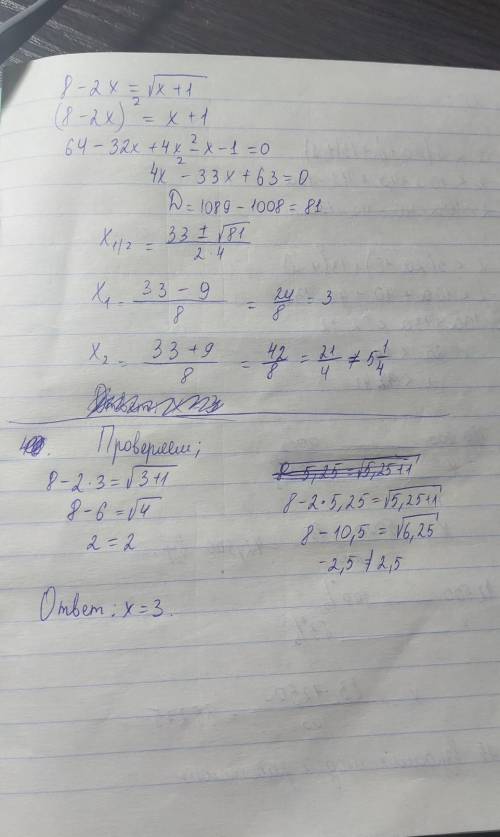 8 - 2x = √(x+1)
(8 - 2x)² = x + 1
64 - 32x + 4x² - x - 1 = 0
4x² - 33x + 63 = 0
D = 1089 - 1008 = 81
x1/2 = (33 ± √81)/(2·4)
x₁ = (33 - 9)/8 = 24/8 = 3
x₂ = (33 + 9)/8 = 42/8 = 21/4 ≠ 5 1/4
Проверяем;
8 - 2·3 = √(3+1)
8 - 6 = √4
2 = 2
8 - 5,25 = √(5,25+1)
8 - 2·5,25 = √(5,25+1)
8 - 10,5 = √6,25
-2,5 ≠ 2,5
Ответ: x = 3.